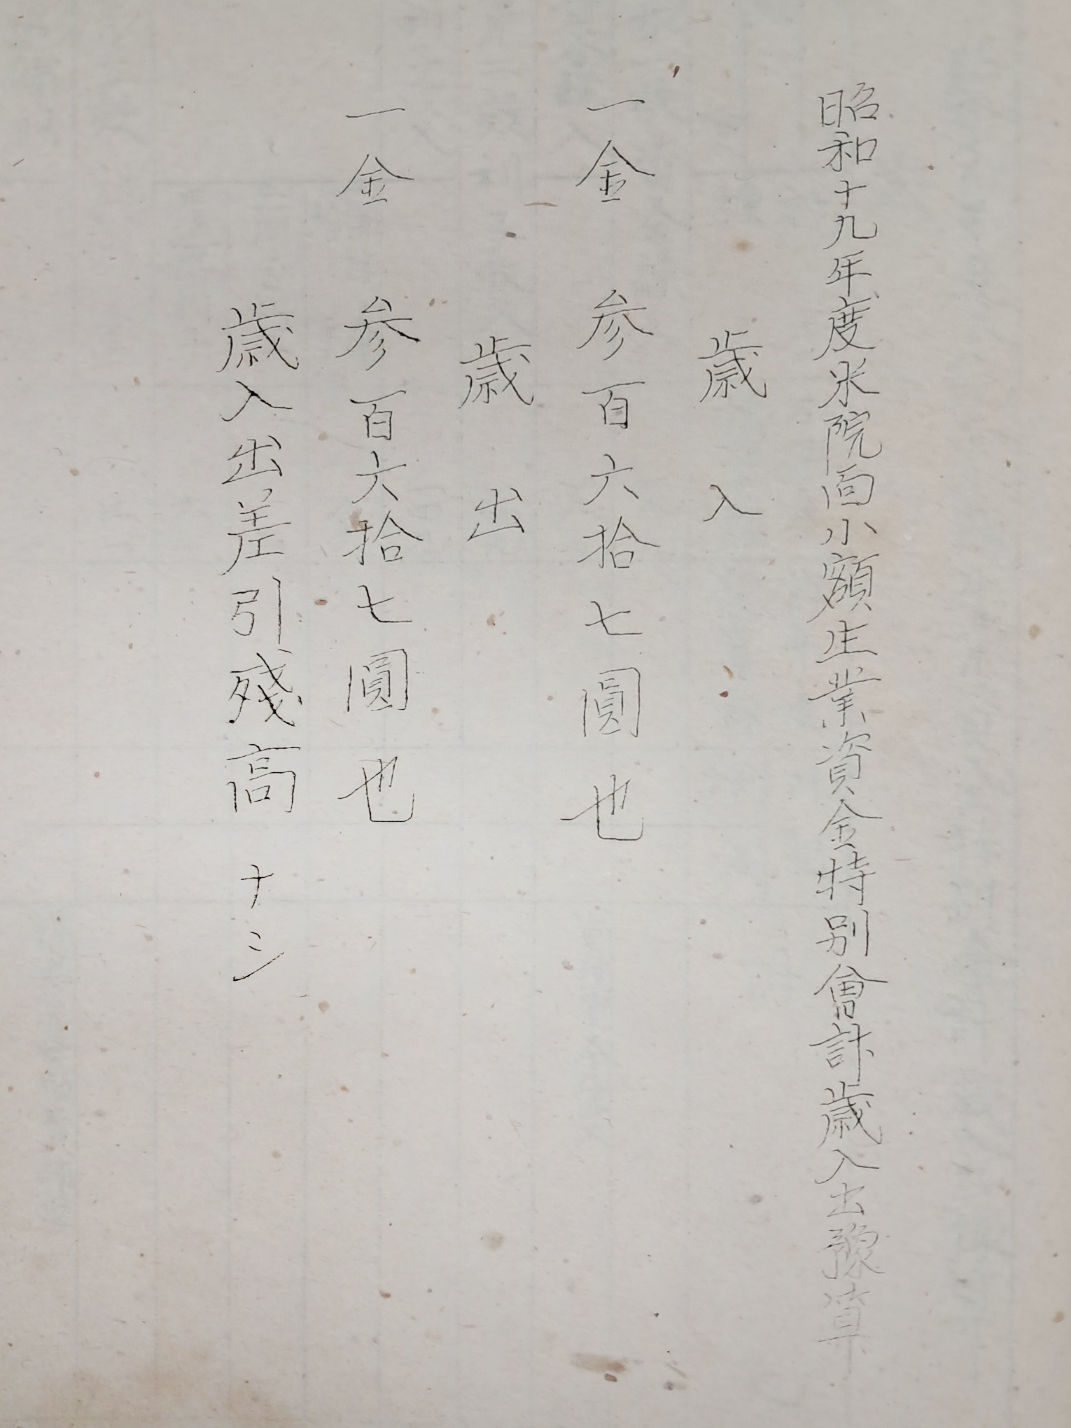 昭和十九年度米院面小額生業資金特別會計歳入出豫算
歳入
一金 参百六拾七圓也
歳出
一金 参百六拾七圓也
歳入出差引殘高 ナシ